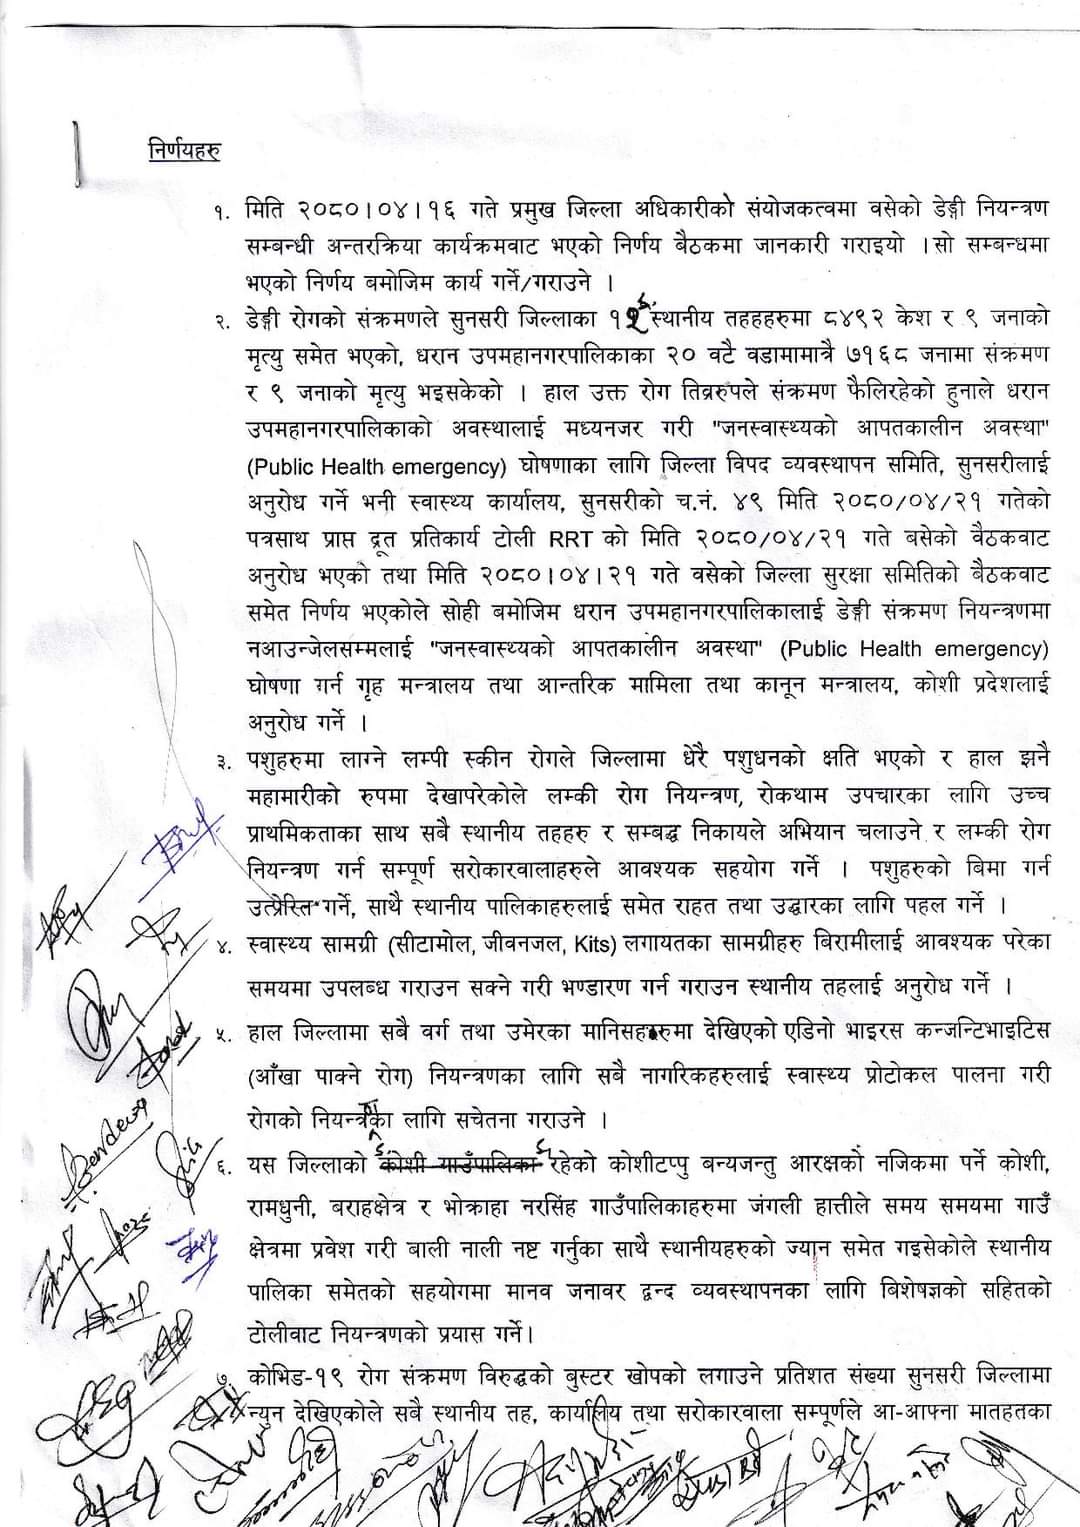 निर्णयहरु
१. मिति २०८०।०४।१६ गते प्रमुख जिल्ला अधिकारीको संयोजकत्वमा वसेको डेङ्गी नियन्त्रण
सम्बन्धी अन्तरक्रिया कार्यक्रमवाट भएको निर्णय बैठकमा जानकारी गराइयो ।सो सम्बन्धमा
भएको निर्णय बमोजिम कार्य गर्ने/गराउने ।
२. डेङ्गी रोगको संक्रमणले सुनसरी जिल्लाका १२ स्थानीय तहहहरुमा ८४९२ केश र ९ जनाको
मृत्यु समेत भएको, धरान उपमहानगरपालिकाका २० वटै वडामामात्रै ७१६८ जनामा संक्रमण
र ९ जनाको मृत्यु भइसकेको । हाल उक्त रोग तिव्ररुपले संक्रमण फैलिरहेको हुनाले धरान
उपमहानगरपालिकाको अवस्थालाई मध्यनजर गरी "जनस्वास्थ्यको आपतकालीन अवस्था"
(Public Health emergency) घोषणाका लागि जिल्ला विपद व्यवस्थापन समिति, सुनसरीलाई
अनुरोध गर्ने भनी स्वास्थ्य कार्यालय, सुनसरीको च.नं. ४९ मिति २०८०/०४/२१ गतेको
पत्रसाथ प्राप्त द्रूत प्रतिकार्य टोली RRT को मिति २०८०/०४/२१ गते बसेको वैठकवाट
अनुरोध भएको तथा मिति २०८०।०४।२१ गते वसेको जिल्ला सुरक्षा समितिको बैठकवाट
समेत निर्णय भएकोले सोही बमोजिम धरान उपमहानगरपालिकालाई डेङ्गी संक्रमण नियन्त्रणमा
नआउन्जेलसम्मलाई "जनस्वास्थ्यको आपतकालीन अवस्था" (Public Health emergency)
घोषणा गर्न गृह मन्त्रालय तथा आन्तरिक मामिला तथा कानून मन्त्रालय, कोशी प्रदेशलाई
अनुरोध गर्ने ।
३. पशुहरुमा लाग्ने लम्पी स्कीन रोगले जिल्लामा धेरै पशुधनको क्षति भएको र हाल झनै
महामारीको रुपमा देखापरेकोले लम्की रोग नियन्त्रण, रोकथाम उपचारका लागि उच्च
प्राथमिकताका साथ सबै स्थानीय तहहरु र सम्बद्ध निकायले अभियान चलाउने र लम्की रोग
नियन्त्रण गर्न सम्पूर्ण सरोकारवालाहरुले आवश्यक सहयोग गर्ने । पशुहरुको बिमा गर्न
उत्प्रेरित गर्ने, साथै स्थानीय पालिकाहरुलाई समेत राहत तथा उद्धारका लागि पहल गर्ने ।
४. स्वास्थ्य सामग्री (सीटामोल, जीवनजल, Kits) लगायतका सामग्रीहरु बिरामीलाई आवश्यक परेका
समयमा उपलब्ध गराउन सक्ने गरी भण्डारण गर्न गराउन स्थानीय तहलाई अनुरोध गर्ने ।
५. हाल जिल्लामा सबै वर्ग तथा उमेरका मानिसहरुमा देखिएको एडिनो भाइरस कन्जन्टिभाइटिस
(आँखा पाक्ने रोग) नियन्त्रणका लागि सबै नागरिकहरुलाई स्वास्थ्य प्रोटोकल पालना गरी
रोगको नियन्त्रणका लागि सचेतना गराउने ।
६. यस जिल्लाको कोशी गाउँपालिका रहेको कोशीटप्पु बन्यजन्तु आरक्षको नजिकमा पर्ने कोशी,
रामधुनी, बराहक्षेत्र र भोक्राहा नरसिंह गाउँपालिकाहरुमा जंगली हात्तीले समय समयमा गाउँ
क्षेत्रमा प्रवेश गरी बाली नाली नष्ट गर्नुका साथै स्थानीयहरुको ज्यान समेत गइसेकोले स्थानीय
पालिका समेतको सहयोगमा मानव जनावर द्वन्द व्यवस्थापनका लागि बिशेषज्ञको सहितको
टोलीवाट नियन्त्रणको प्रयास गर्ने।
७. कोभिड-१९ रोग संक्रमण विरुद्धको बुस्टर खोपको लगाउने प्रतिशत संख्या सुनसरी जिल्लामा
न्युन देखिएकोले सबै स्थानीय तह, कार्यालय तथा सरोकारवाला सम्पूर्णले आ-आफ्ना मातहतका